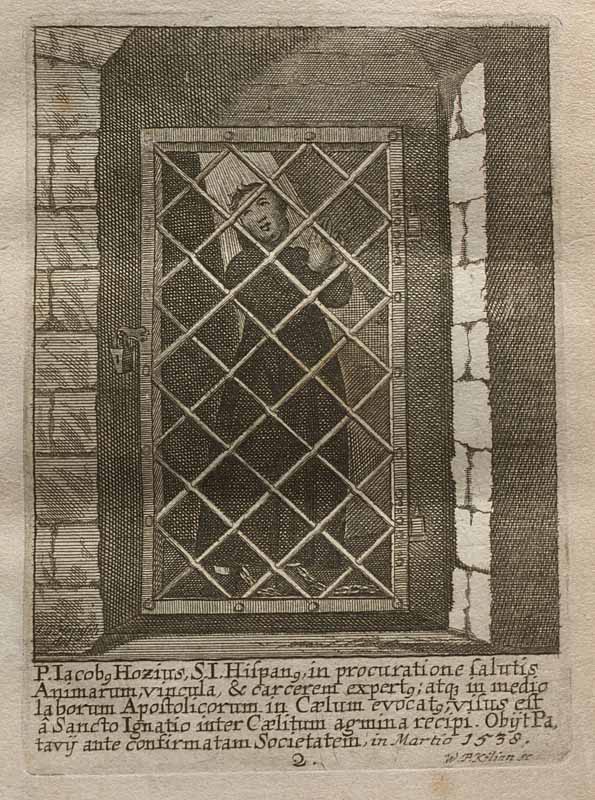 P. Iacobꝰ Hozius, S. I. Hiſpanꝰ, in procuratione ſalutis
Animarum, vincula, & carcerem expertꝰ; atqꝫ in medio
laborum Apoſtolicorum in Cælum evocatꝰ, viſus eſt
â Sancto Ignatio inter Cælitum agmina recipi. Obijt Pa,
tavij ante confirmatam Societatem, in Martio 1538.
2.
W P Kilian sc